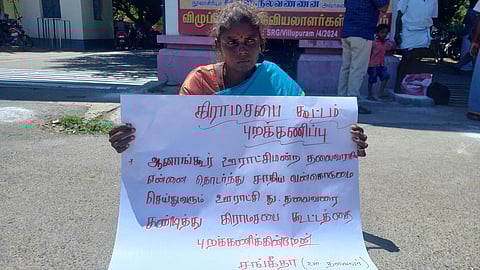 விழுப்பு
வியலாளர்கள்
SRG/Villupuram /4/2024
கிராமசபை கூட்டம்
புறக்கணிப்பு
ஆனாங்கூர் ஊராட்சிமன்ற தலைவரா
என்னை தொடர்ந்து சாதிய வன்கொடுமை
செய்துவரும் ஊராட்சி து. தலைவரை
கண்டித்து கிராமசபை கூட்டத்தை
புறக்கணிக்கின்றேன்
சங்கீதா